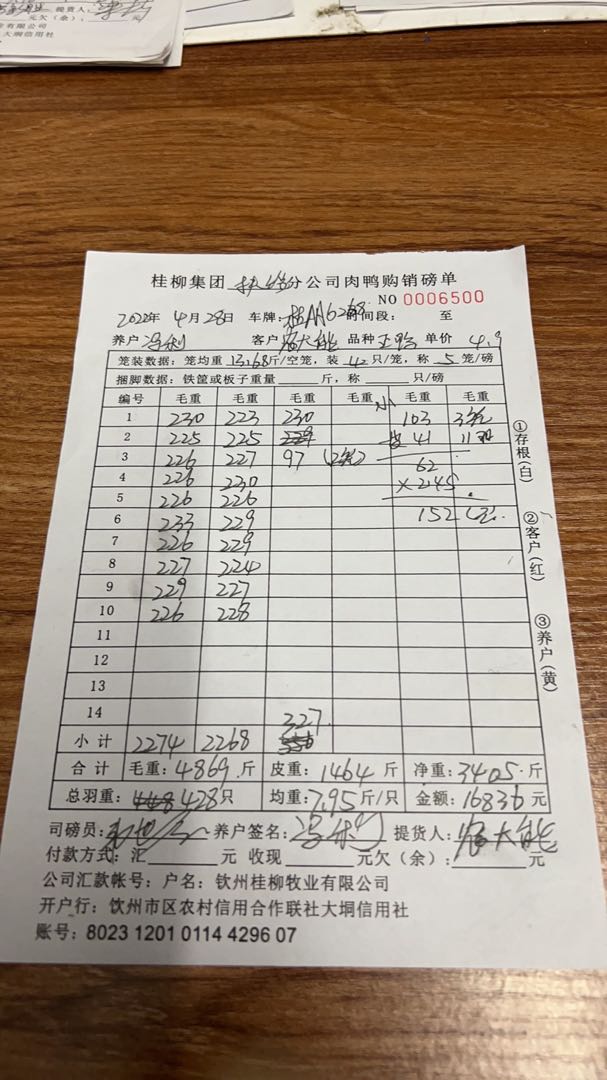 提货人:
元欠(余): 元
有限公司
大垌信用社
桂柳集团 分公司肉鸭购销磅单
NO 0006500
2022年 4月28日 车牌: 时间段: 至
养户 冯利 客户 大能 品种 单价 4.
笼装数据: 笼均重 13.68斤/空笼, 装 42只/笼, 称 5 笼/磅
捆脚数据: 铁筐或板子重量 斤, 称 只/磅
编号 毛重 毛重 毛重 毛重 毛重 毛重
1 230 223 230 小 103 3笼
2 225 225 41 11
3 226 227 97 (2笼) 62
4 226 230 ×2.45
5 226 226
6 233 229 152
7 226 229
8 227 224
9 229 227
10 226 228
11
12
13
14 327
小计 2274 2268
合计 毛重: 4869 斤 皮重: 1464 斤 净重: 3405 斤
总羽重: 428只 均重: 7.95斤/只 金额: 16836 元
司磅员: 养户签名: 冯利 提货人: 大能
付款方式: 汇 元 收现 元欠(余): 元
公司汇款帐号: 户名: 钦州桂柳牧业有限公司
开户行: 钦州市区农村信用合作联社大垌信用社
账号: 8023 1201 0114 4296 07
①存根(白)
②客户(红)
③养户(黄)